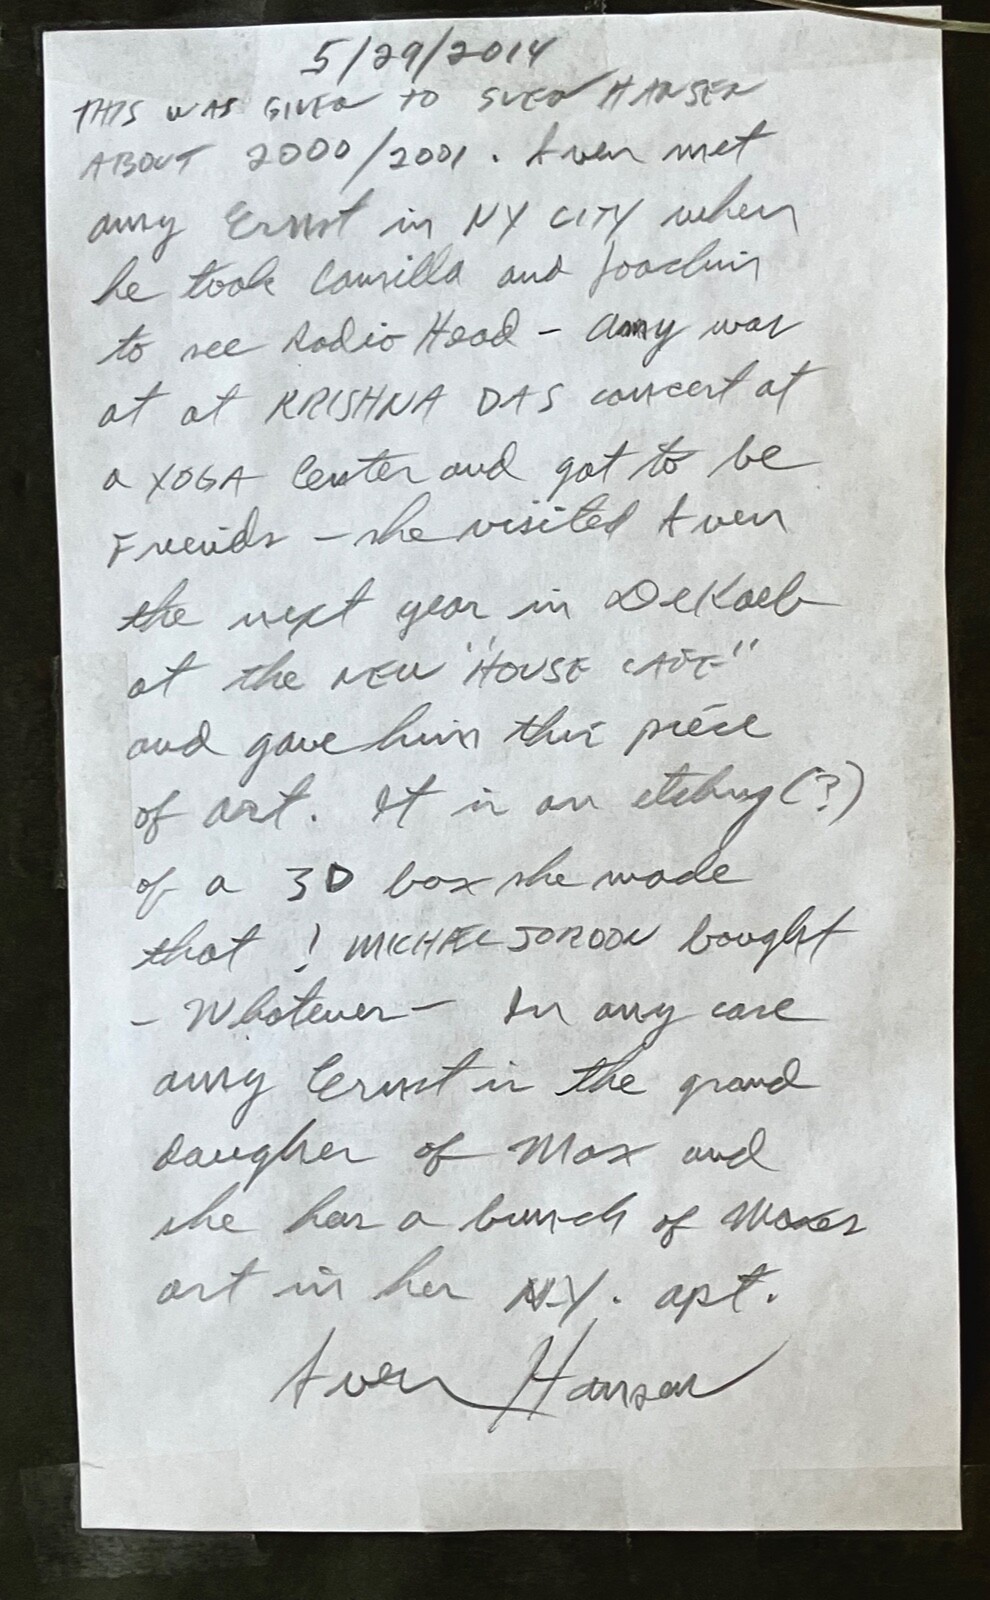 5/29/2014
THIS WAS GIVEN TO SVEN HANSEN
ABOUT 2000/2001. Sven met
amy Ernst in NY CITY when
he took Camilla and Joachim
to see Radio Head - Amy was
at at KRISHNA DAS concert at
a YOGA Center and got to be
Freinds - she visited Sven
the next year in DeKalb
at the NEW "HOUSE CAFE"
and gave him this piece
of art. It is an etching (?)
of a 3D box she made
that ! MICHAEL JORDON bought
- Whatever - In any case
amy Ernst is the grand
daugher of Max and
she has a bunch of Maxes
art in her N.Y. apt.
Sven Hansen